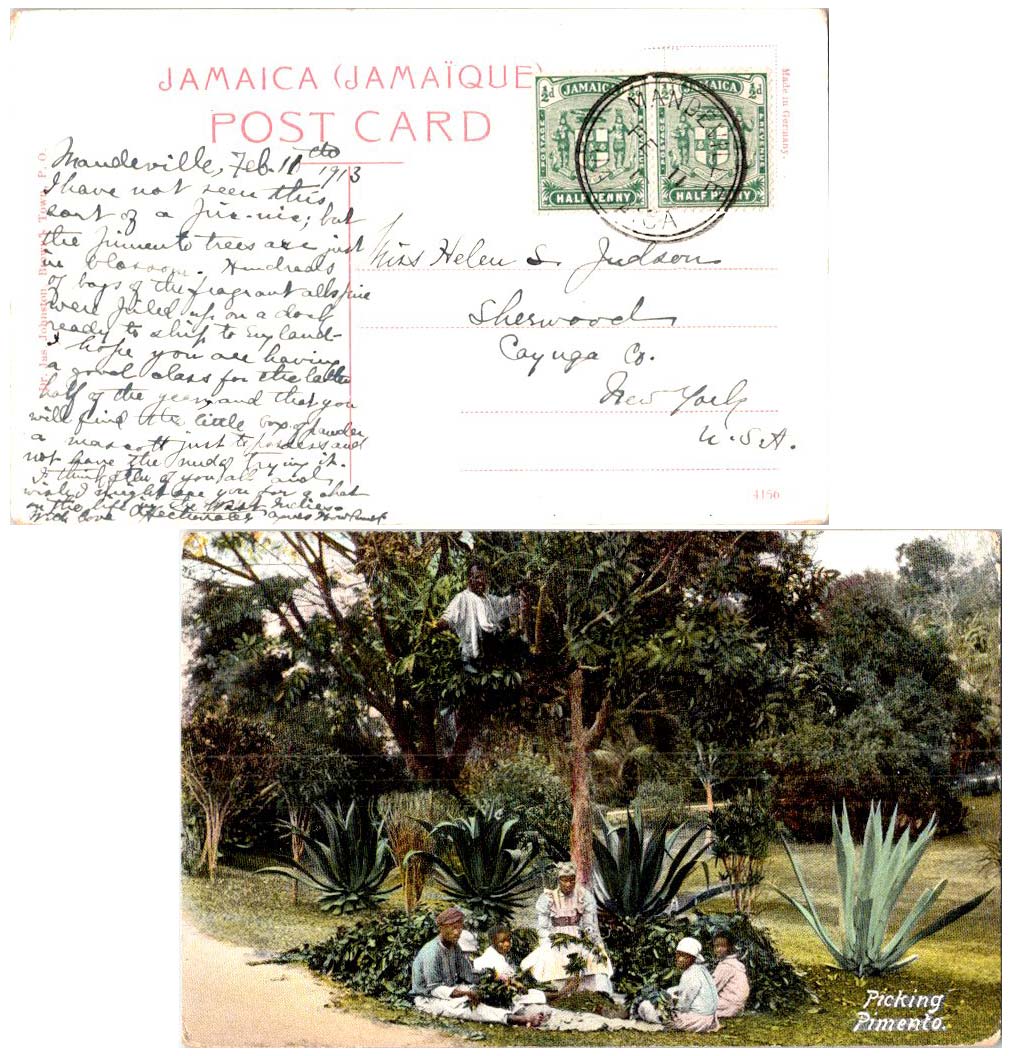 JAMAICA (JAMAÏQUE)
POST CARD
Made in Germany.
½d JAMAICA ½d
POSTAGE REVENUE
HALFPENNY
½d JAMAICA ½d
POSTAGE REVENUE
HALFPENNY
MANDEVILLE
FE 11
Mandeville, Feb. 11th 1913
I have not seen this
sort of a pic-nic; but
the pimento trees are just
in blossom. Hundreds
of bags of the fragrant allspice
were piled up on a dock
ready to ship to England
I hope you are having
a good class for the latter
half of the year, and that you
will find the little box of powder
a mascott just to possess and
not have the need of trying it.
I think often of you all and
wish I might see you for a chat
on the life in the West Indies.
With love Affectionately
Dr. Jas Johnston, Brown's Town P. O.
Miss Helen S. Judson
Sherwood
Cayuga Co.
New York
U.S.A.
4166
Picking
Pimento.